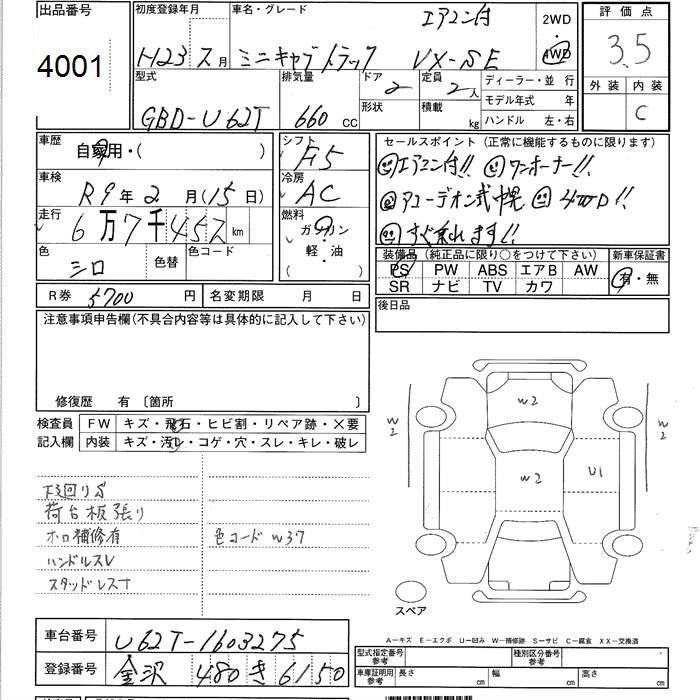 出品番号
4001
初度登録年月
H23 年 月
車名・グレード
エアコン付
ミニキャブトラック VX-SE
2WD
4WD
評価点
3.5
外装 内装
C
型式
GBD-U62T
排気量
660 CC
ドア
2
形状
定員
2人
積載
kg
ディーラー・並行
モデル年式 年
ハンドル 左・右
車歴
自家用・( )
シフト
F5
セールスポイント(正常に機能するものに限ります)
エアコン付!! ワンオーナー!!
アコーデオン式幌 4WD!!
すぐ乗れます!!
車検
R9年2月(15日)
冷房
AC
走行
6万7千452km
燃料
ガソリン
軽・油
( )
色
シロ
色替
色コード
装備品(純正品に限り○をつけて下さい)
新車保証書
PS PW ABS エアB AW
SR ナビ TV カワ
有・無
R券 5700円
名変期限 月 日
後日品
注意事項申告欄(不具合内容等は具体的に記入して下さい)
修復歴 有〔箇所 〕
検査員
記入欄
FW キズ・飛石・ヒビ割・リペア跡・×要
内装 キズ・汚レ・コゲ・穴・スレ・キレ・破レ
下廻りS
荷台板張り
ホロ補修有
色コード W37
ハンドルスレ
スタッドレスT
W2
W2
W2
U1
W2
スペア
車台番号 U62T-1603275
登録番号 金沢 480 き 6150
A-キズ E-エクボ U-凹み W-補修跡 S-サビ C-腐食 XX-交換済
型式指定番号
参考
種別区分番号
参考
車庫証明用
参考
長さ cm
幅 cm
高さ cm